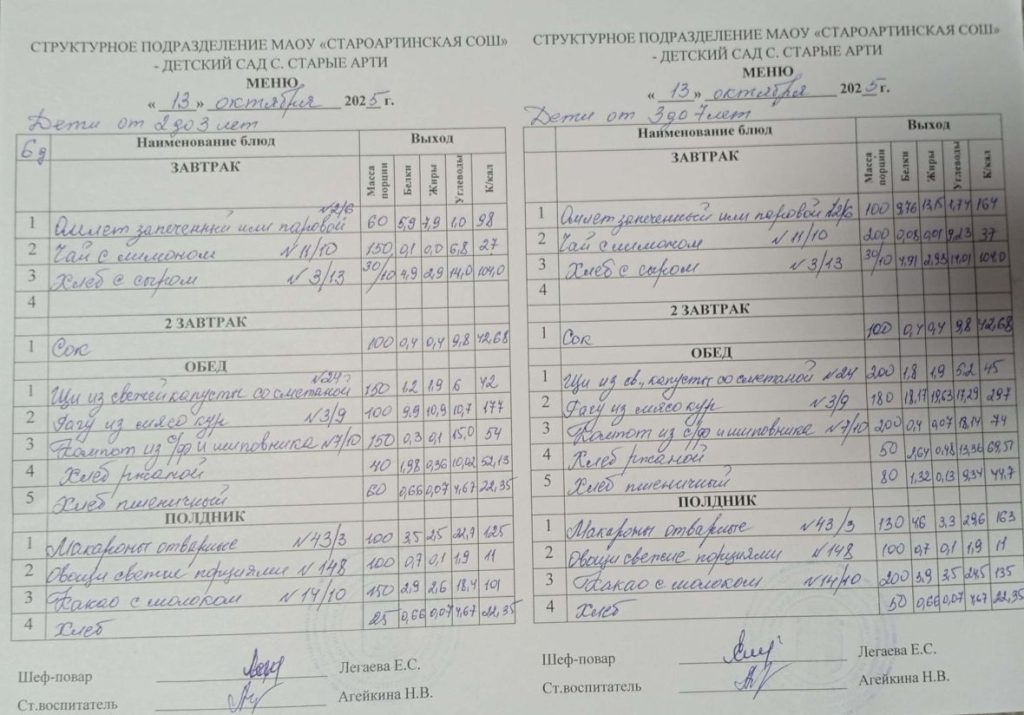 СТРУКТУРНОЕ ПОДРАЗДЕЛЕНИЕ МАОУ «СТАРОАРТИНСКАЯ СОШ»
- ДЕТСКИЙ САД С. СТАРЫЕ АРТИ
МЕНЮ
« 13 » октября 2025 г.
Дети от 2 до 3 лет
6 д Наименование блюд Выход
ЗАВТРАК Масса порции Белки Жиры Углеводы К/кал
1 Омлет запеченный или паровой №2/6 60 5,9 7,9 1,0 98
2 Чай с лимоном №11/10 150 0,1 0,0 6,8 27
3 Хлеб с сыром №3/13 30/10 4,9 2,9 14,0 104,0
4
2 ЗАВТРАК
1 Сок 100 0,4 0,4 9,8 42,68
ОБЕД
1 Щи из свежей капусты со сметаной №24 150 1,2 1,9 6 42
2 Рагу из мясо кур №3/9 100 9,9 10,9 10,7 177
3 Компот из с/ф и шиповника №7/10 150 0,3 0,1 15,0 54
4 Хлеб ржаной 40 1,98 0,36 10,02 52,13
5 Хлеб пшеничный 60 0,66 0,07 4,67 22,35
ПОЛДНИК
1 Макароны отварные №43/3 100 3,5 2,5 22,7 125
2 Овощи свежие порциями №148 100 0,7 0,1 1,9 11
3 Какао с молоком №14/10 150 2,9 2,6 18,4 101
4 Хлеб 25 0,66 0,07 4,67 22,35
Шеф-повар Легаева Е.С.
Ст.воспитатель Агейкина Н.В.
СТРУКТУРНОЕ ПОДРАЗДЕЛЕНИЕ МАОУ «СТАРОАРТИНСКАЯ СОШ»
- ДЕТСКИЙ САД С. СТАРЫЕ АРТИ
МЕНЮ
« 13 » октября 2025 г.
Дети от 3 до 7 лет
Наименование блюд Выход
ЗАВТРАК Масса порции Белки Жиры Углеводы К/кал
1 Омлет запеченный или паровой №2/6 100 9,76 13,15 1,74 164
2 Чай с лимоном №11/10 200 0,08 0,01 9,23 37
3 Хлеб с сыром №3/13 30/10 4,91 2,93 14,01 104,0
4
2 ЗАВТРАК
1 Сок 100 0,4 0,4 9,8 42,68
ОБЕД
1 Щи из св., капусты со сметаной №24 200 1,8 1,9 5,2 45
2 Рагу из мясо кур №3/9 180 18,17 19,63 17,29 297
3 Компот из с/ф и шиповника №7/10 200 0,4 0,07 18,14 74
4 Хлеб ржаной 50 2,64 0,48 13,36 69,51
5 Хлеб пшеничный 80 1,32 0,13 9,34 44,7
ПОЛДНИК
1 Макароны отварные №43/3 130 4,6 3,3 29,6 163
2 Овощи свежие порциями №148 100 0,7 0,1 1,9 11
3 Какао с молоком №14/10 200 3,9 3,5 24,5 135
4 Хлеб 50 0,66 0,07 4,67 22,35
Шеф-повар Легаева Е.С.
Ст.воспитатель Агейкина Н.В.